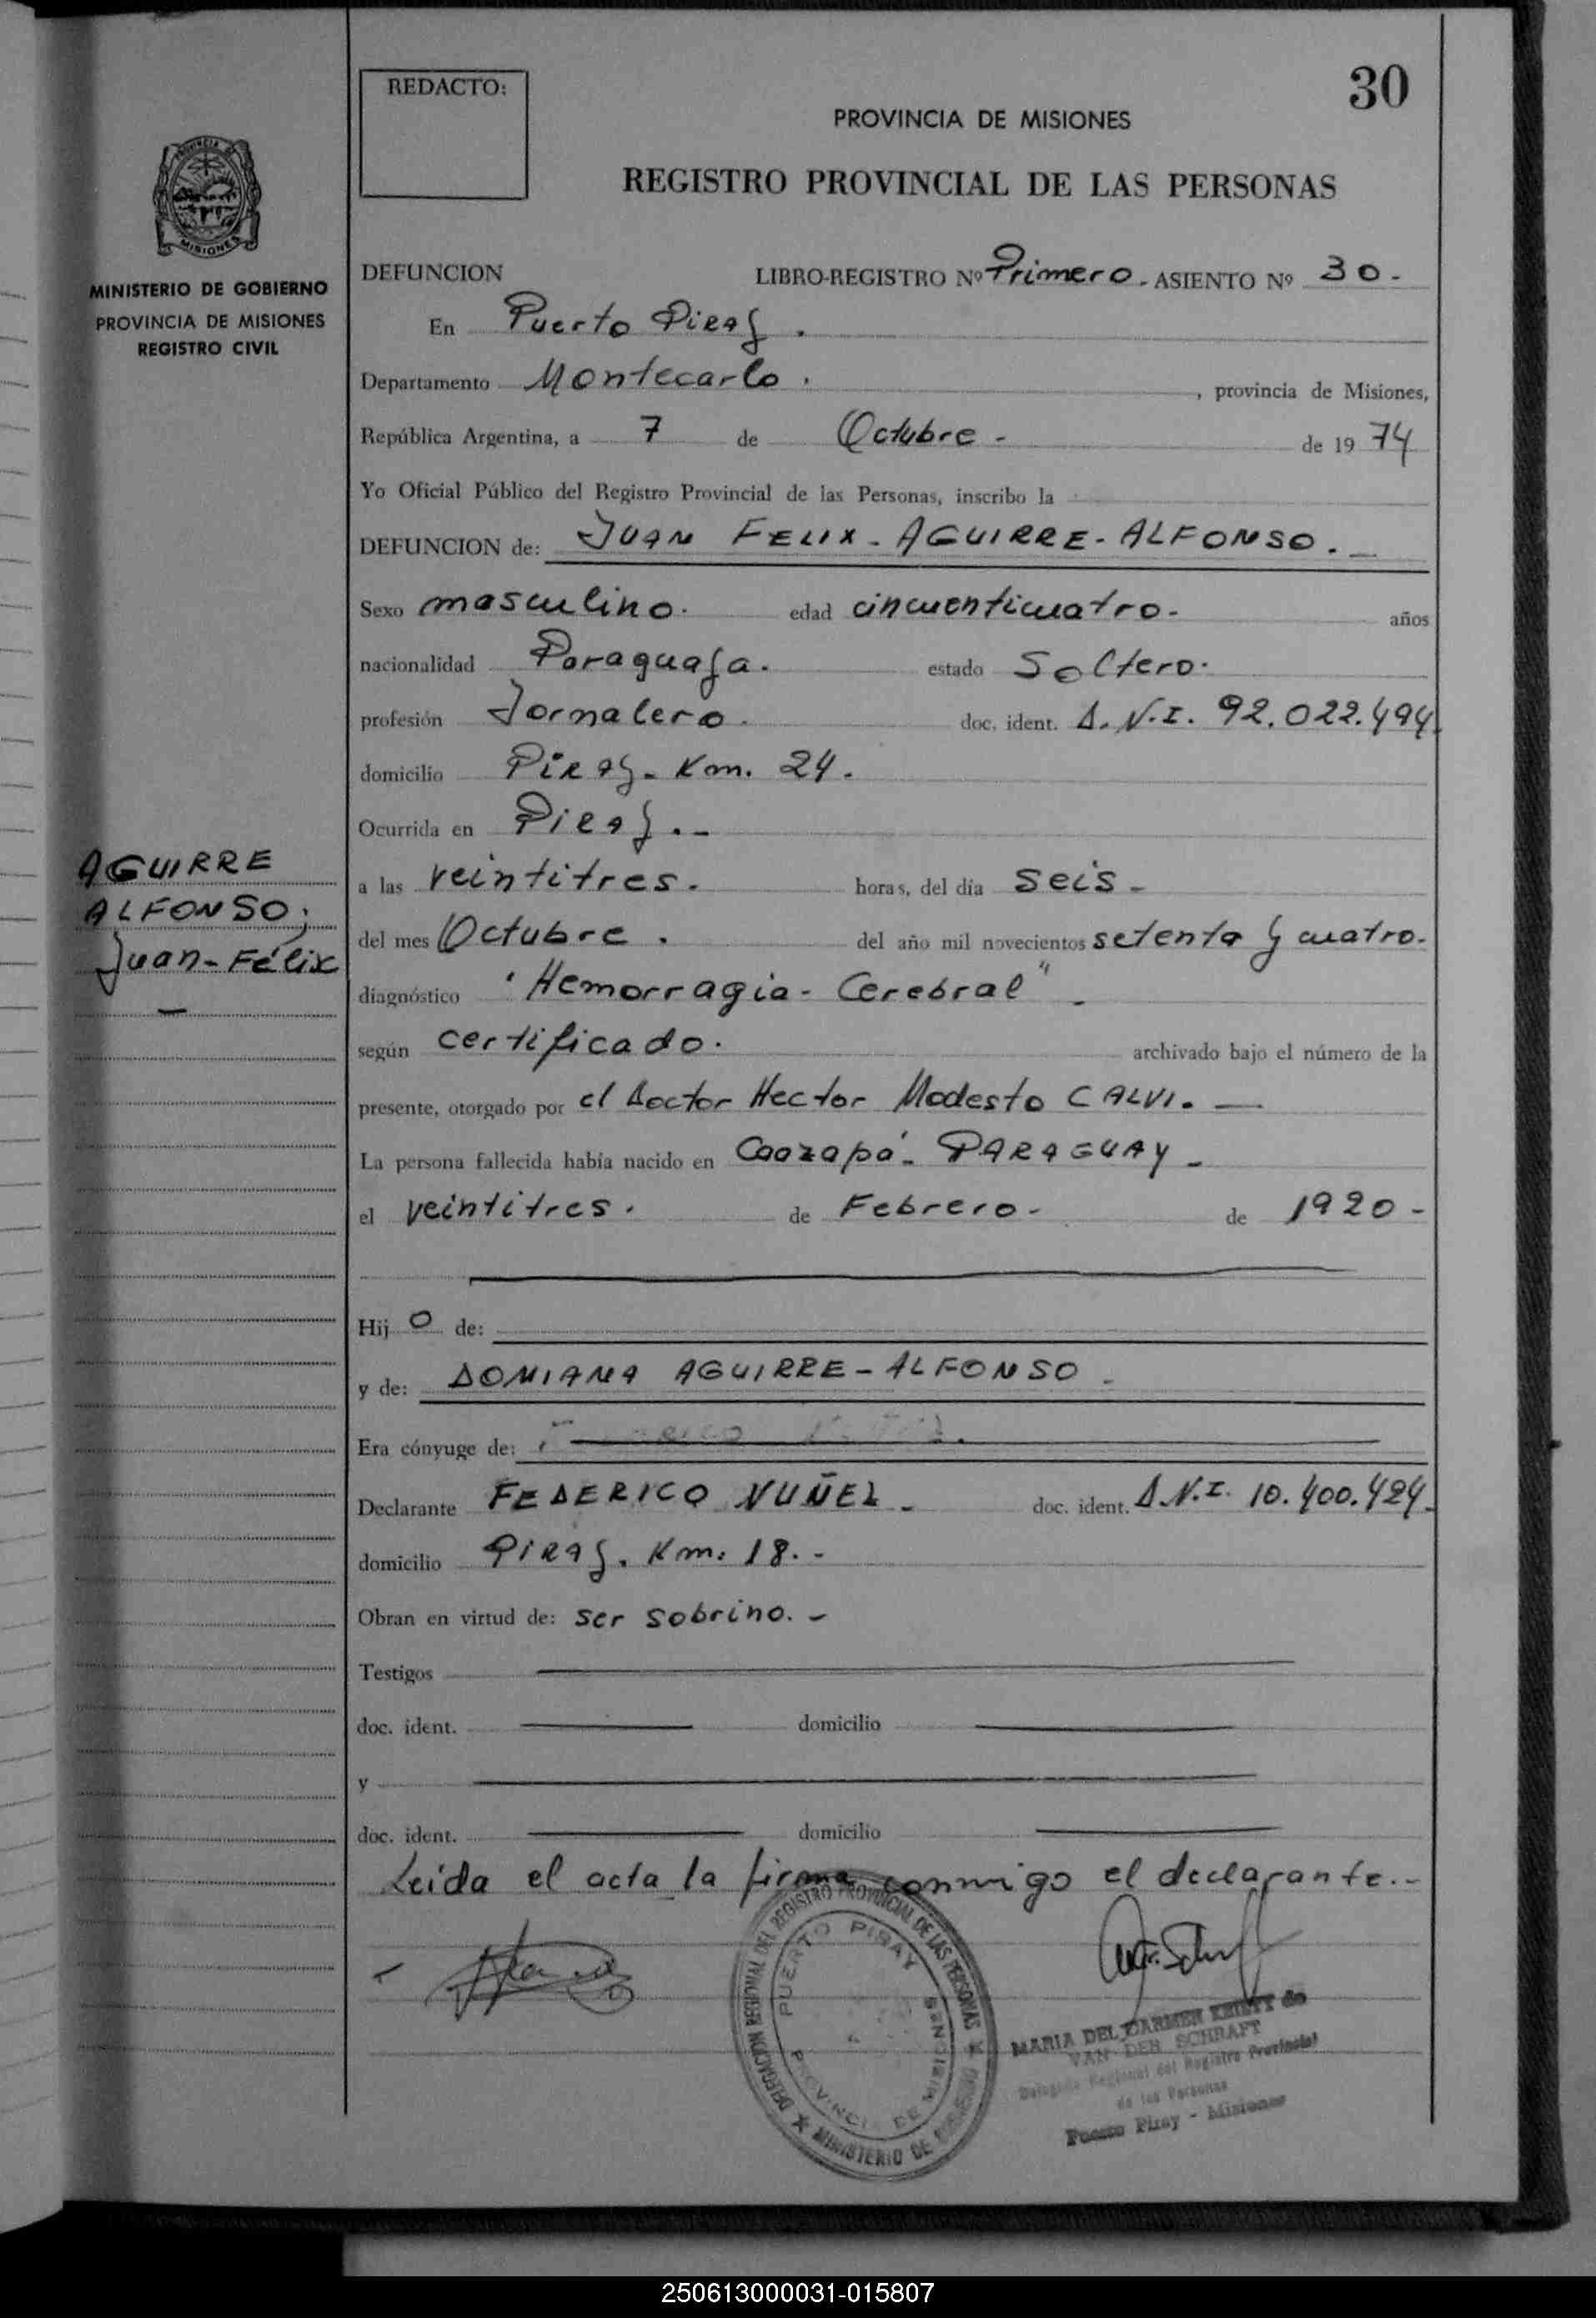 REDACTO:
30
PROVINCIA DE MISIONES
REGISTRO PROVINCIAL DE LAS PERSONAS
MISIONES
MINISTERIO DE GOBIERNO
PROVINCIA DE MISIONES
REGISTRO CIVIL
DEFUNCION LIBRO-REGISTRO Nº Primero. ASIENTO Nº 30-
En Puerto Piray.
Departamento Montecarlo. , provincia de Misiones,
República Argentina, a 7 de Octubre - de 19 74
Yo Oficial Público del Registro Provincial de las Personas, inscribo la
DEFUNCION de: JUAN FELIX-AGUIRRE-ALFONSO.-
Sexo masculino. edad cincuenticuatro- años
nacionalidad Paraguaya. estado Soltero.
profesión Jornalero. doc. ident. D.N.I. 92.022.494.
domicilio PIRAY- Km. 24.
Ocurrida en PIRAY.-
a las veintitres. horas, del día seis-
del mes Octubre. del año mil novecientos setenta y cuatro-
diagnóstico "Hemorragia-Cerebral"-
según certificado. archivado bajo el número de la
presente, otorgado por el Doctor Hector Modesto CALVI.-
La persona fallecida había nacido en Caazapá- PARAGUAY-
el veintitres. de Febrero- de 1920-
Hij o de:
y de: DOMIANA AGUIRRE-ALFONSO-
Era cónyuge de:
Declarante FEDERICO NUÑEZ- doc. ident. D.N.I. 10.400.424.
domicilio PIRAY. Km. 18.-
Obran en virtud de: ser sobrino.-
Testigos
doc. ident. domicilio
y
doc. ident. domicilio
Leida el acta la firma conmigo el declarante.-
AGUIRRE
ALFONSO;
Juan-Félix
-
DELEGACION REGIONAL DEL REGISTRO PROVINCIAL DE LAS PERSONAS
MINISTERIO DE
PUERTO PIRAY
MARIA DEL CARMEN de
VAN DER SCHRAFT
Delegada Regional del Registro Provincial
de las Personas
Puerto Piray - Misiones
250613000031-015807